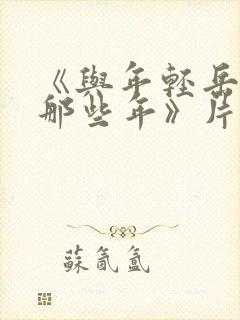 《與年輕岳
那些年》片
蘇氤氳